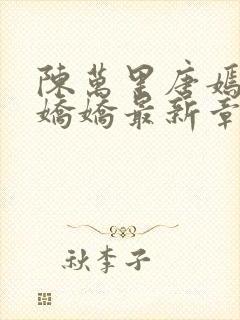 陳萬里唐嫣
嬌嬌最新章
秋李子